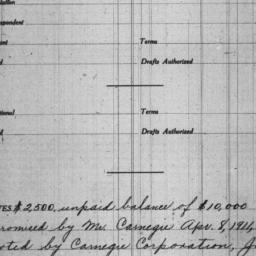 pondent
Terms
Drafts Authorized
tional
Terms
Drafts Authorized
TES $2,500, unpaid balance of $10,000
romised by Mr. Carnegie Apr. 8, 1911,
oted by Carnegie Corporation, J